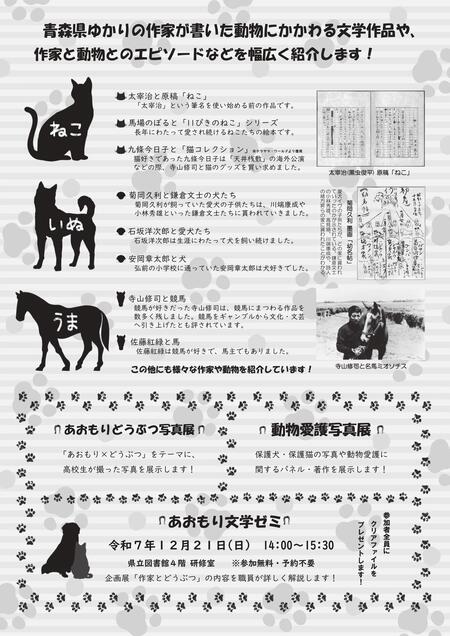 青森県ゆかりの作家が書いた動物にかかわる文学作品や、
作家と動物とのエピソードなどを幅広く紹介します！
ねこ
太宰治と原稿「ねこ」
「太宰治」という筆名を使い始める前の作品です。
馬場のぼると「11ぴきのねこ」シリーズ
長年にわたって愛され続けるねこたちの絵本です。
九條今日子と「猫コレクション」
猫好きであった九條今日子は「天井桟敷」の海外公演
などの際、寺山修司と猫のグッズを買い求めました。
太宰治(黒虫俊平) 原稿「ねこ」
いぬ
菊岡久利と鎌倉文士の犬たち
菊岡久利が飼っていた愛犬の子供たちは、川端康成や
小林秀雄といった鎌倉文士たちに貰われていきました。
石坂洋次郎と愛犬たち
石坂洋次郎は生涯にわたって犬を飼い続けました。
安岡章太郎と犬
弘前の小学校に通っていた安岡章太郎は犬好きでした。
菊岡久利 墨画「幼名帖」
うま
寺山修司と競馬
競馬が好きだった寺山修司は、競馬にまつわる作品を
数多く残しました。競馬をギャンブルから文化・文芸
へ引き上げたとも評されています。
佐藤紅緑と馬
佐藤紅緑は競馬が好きで、馬主でもありました。
寺山修司と名馬ミオソチス
この他にも様々な作家や動物を紹介しています！
あおもりどうぶつ写真展
「あおもり×どうぶつ」をテーマに、
高校生が撮った写真を展示します！
動物愛護写真展
保護犬・保護猫の写真や動物愛護に
関するパネル・著作を展示します！
あおもり文学ゼミ
令和７年１２月２１日(日)　14:00～15:30
県立図書館４階 研修室　※参加無料・予約不要
企画展「作家とどうぶつ」の内容を職員が詳しく解説します！
参加者全員に
クリアファイルを
プレゼントします！